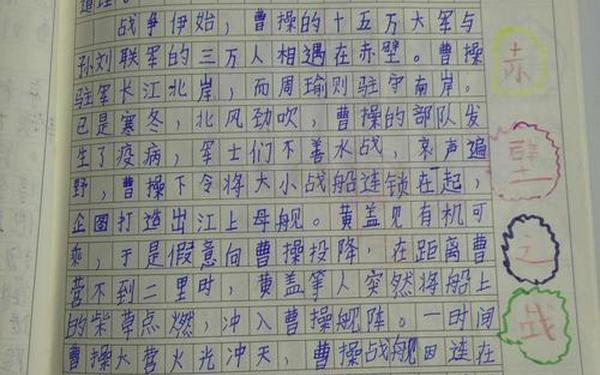 道理。
战争伊始，曹操的十五万大军与
孙刘联军的三万人相遇在赤壁。曹操
驻军长江北岸，而周瑜则驻守南岸。
已是寒冬，北风劲吹，曹操的部队发
生了疫病，军士们不善水战，哀声遍
野，曹操下令将大小战船连锁在起，
企图打造出江上母舰。黄盖见有机可
乘，于是假意向曹操投降，在距离曹
营不到二里时，黄盖等人突然将船上
的柴草点燃，冲入曹操舰阵。一时间
曹操大营火光冲天，曹操战舰因连在
赤
壁
之
战